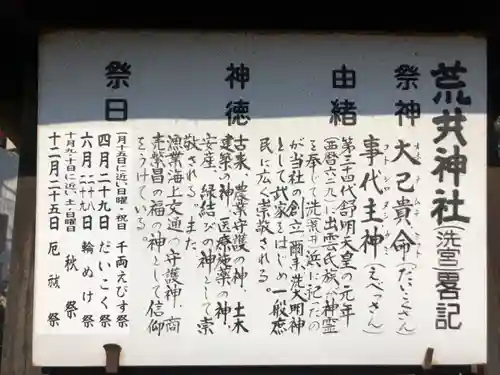 荒井神社(洗宮)畧記
祭神
大己貴命(だいこくさん)
オオナムチノミコト
事代主神(えべっさん)
コトシロヌシノカミ
由緒
第三十四代舒明天皇の元年
(西暦六二九)に出雲氏族、神霊
を奉じて洗(荒井)浜に祀たの
が当社の創立、爾来、洗大明神
として武家をはじめ一般庶
民に広く崇敬される
神徳
古来、農業守護の神、土木
建築の神、医療施薬の神、
安産、縁結びの神として崇
敬される。また、
漁業海上交通の守護神、商
売繁昌の福の神として信仰
をうけている。
祭日
一月十五日に近い日曜・祝日 千両えびす祭
四月二十九日 だいこく祭
六月二十八日 輪ぬけ祭
十月九・十日に近い土・日曜日 秋祭
十二月二十五日 厄祓祭